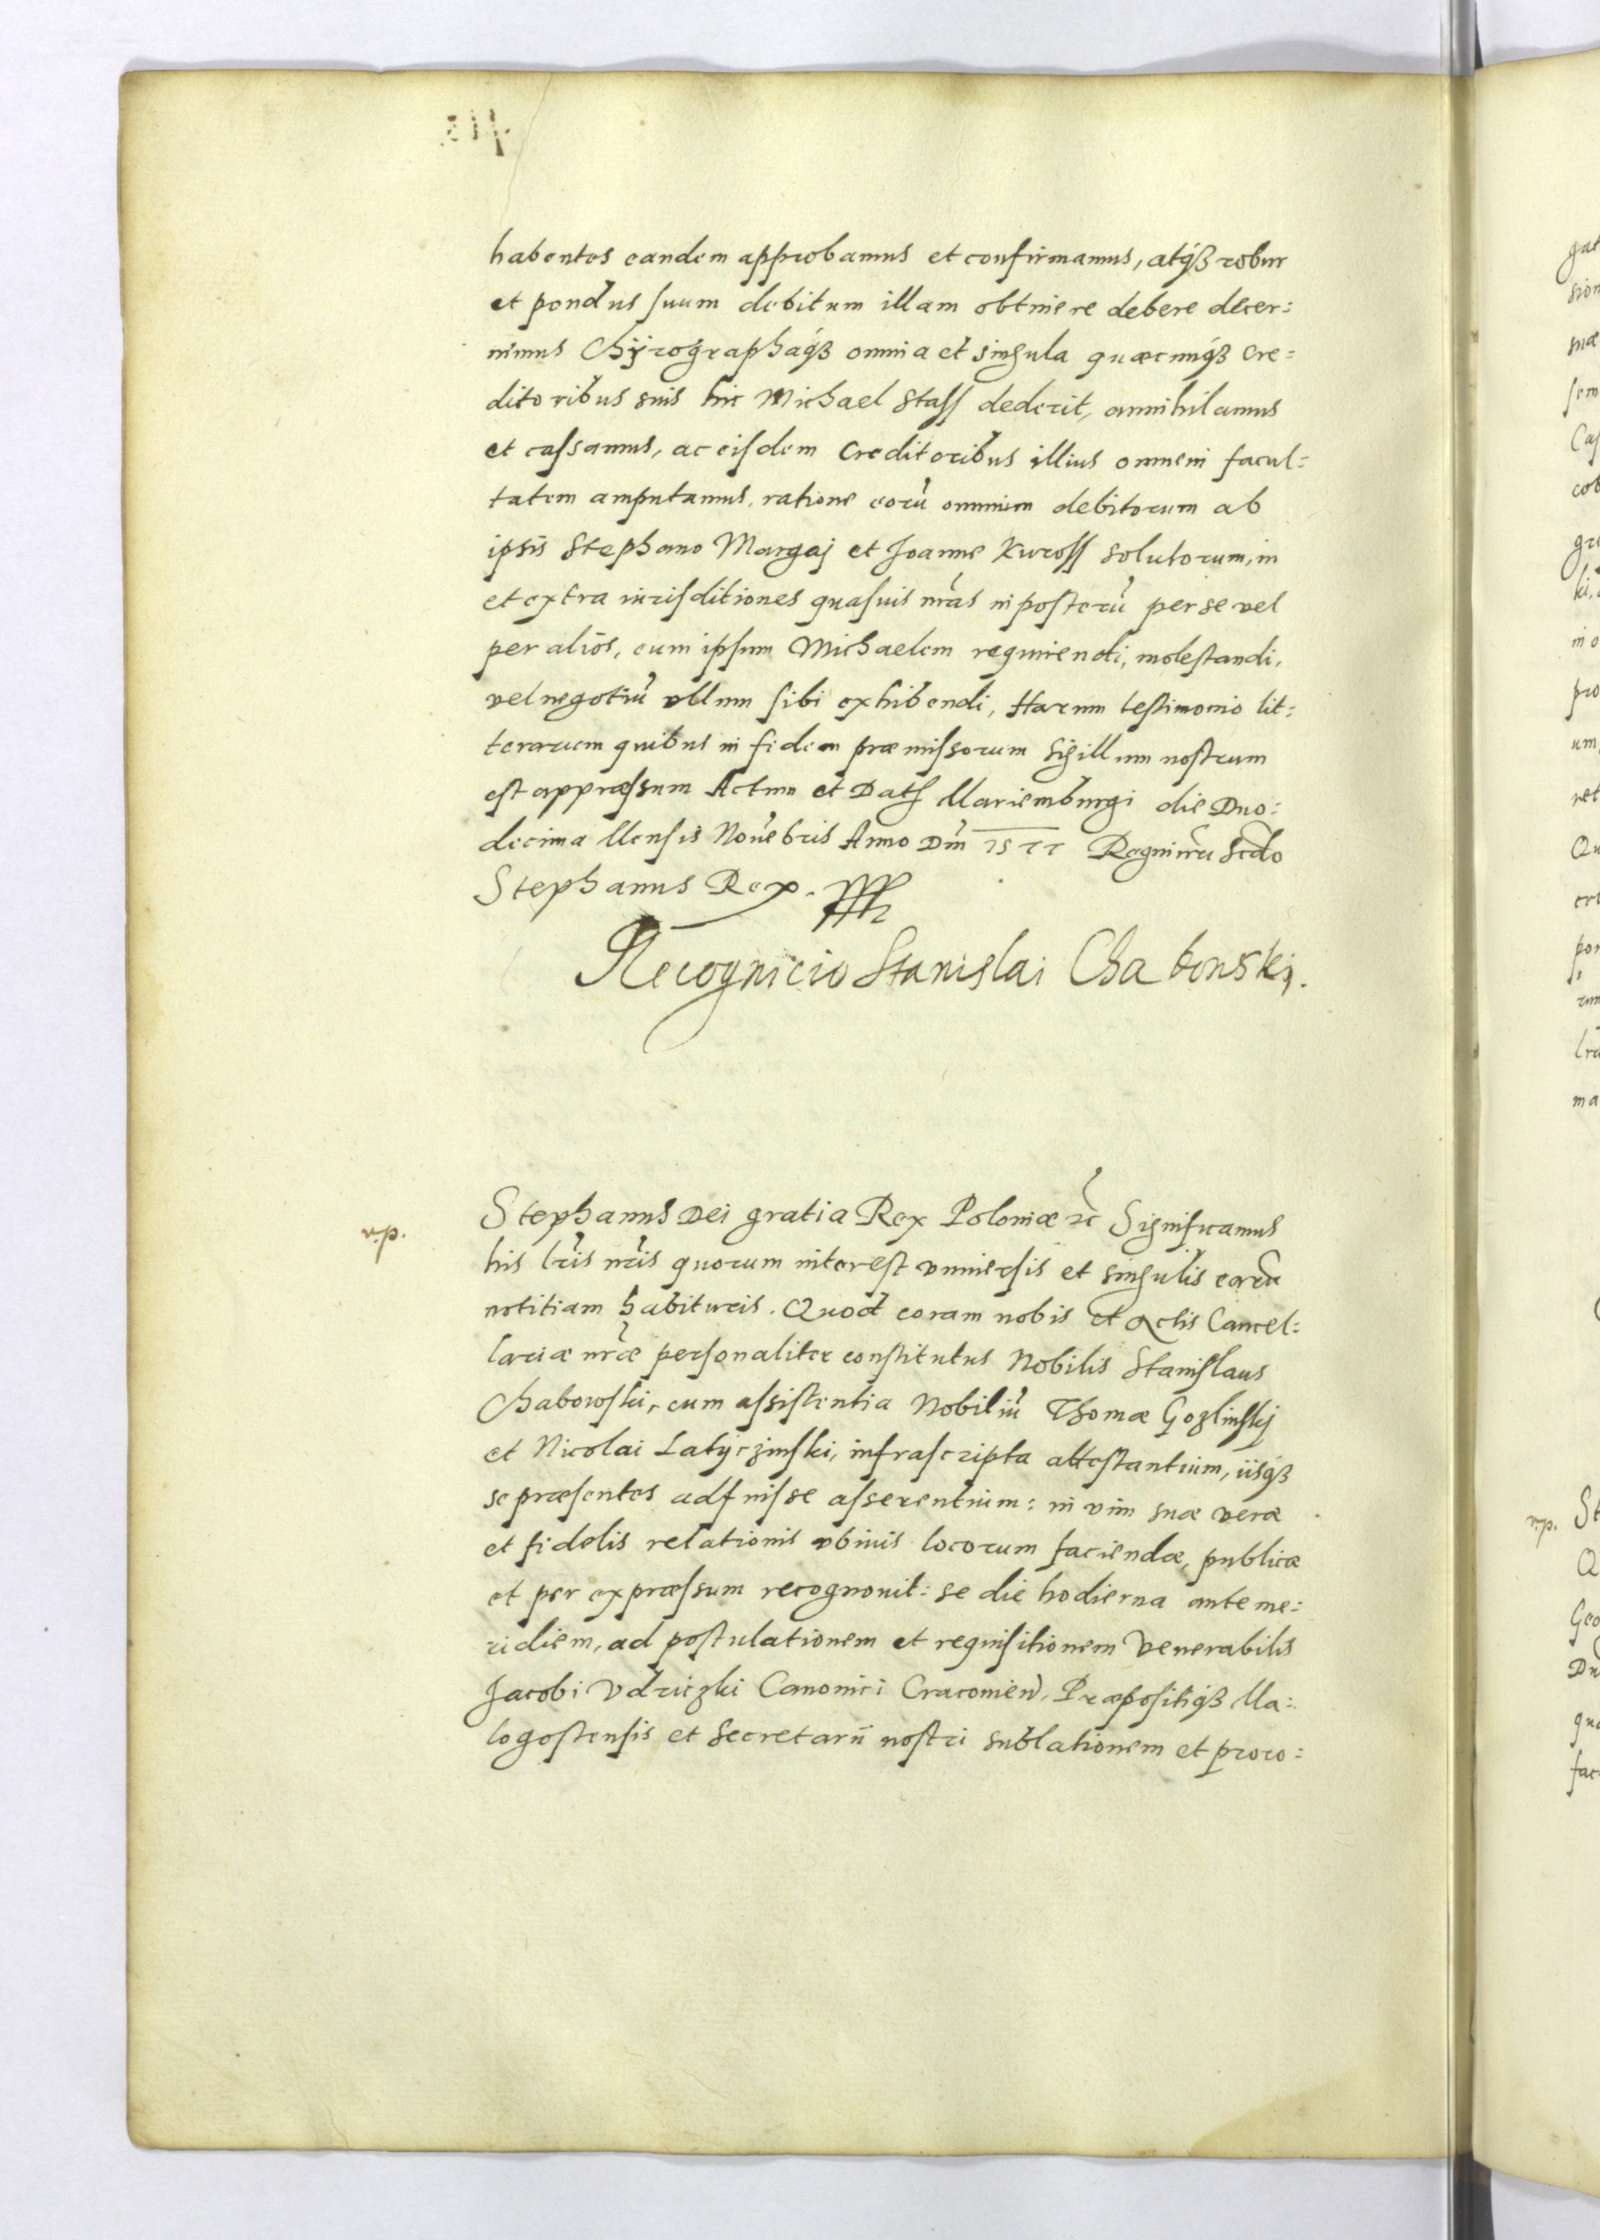 habentes eandem approbamus et confirmamus, atq́ꝫ robur
et pondus suum debitum illam obtinere debere decer:
nimus Chÿrographaq́ꝫ omnia et singula quæcunq́ꝫ Cre=
ditoribus suis hic Michael Stass dederit, annihilamus
et cassamus, ac eisdem Creditoribus illius omnem facul=
tatem amputamus, ratione eorũ omnium debitorum ab
ipsis Stephano Margaj et Joanne Kuross solutorum, in
et extra iurisditiones quasuis nr̃as in posterũ per se vel
per alios, eum ipsum Michaelem requirendi, molestandi,
vel negotiũ vllum sibi exhibendi, Harum testimonio lit:
terarum quibus in fidem præmissorum Sigillum nostrum
est appræssum Actum et Dat Mariemburgi die Duo:
decima Mensis Nouẽbris Anno Dnĩ 1577 Regni nr̃i Scdo
Stephanus Rex.
Recognicio Stanislai Chabowskj.
v.p.
Stephanus Dei gratia Rex Poloniæ ꝛc̃ Significamus
his lr̃is nr̃is quorum interest vniuersis et singulis earũ
notitiam habituris. Quod coram nobis et Actis Cancel:
lariæ nr̃æ personaliter constitutus Nobilis Stanislaus
Chabowski, cum assistentia Nobiliũ Thomæ Gozlinskj
et Nicolai Latÿczinski, infrascripta attestantium, iisq́ꝫ
se præsentes adfuisse asserentium: in vim suæ veræ
et fidelis relationis vbiuis locorum faciendæ, publicæ
et per expræssum recognouit: se die hodierna ante me:
ridiem, ad postulationem et requisitionem Venerabilis
Jacobi Vdriczki Canonici Cracouień, Præpositiq́ꝫ Ma:
logostensis et Secretarii nostri sublationem et proro: